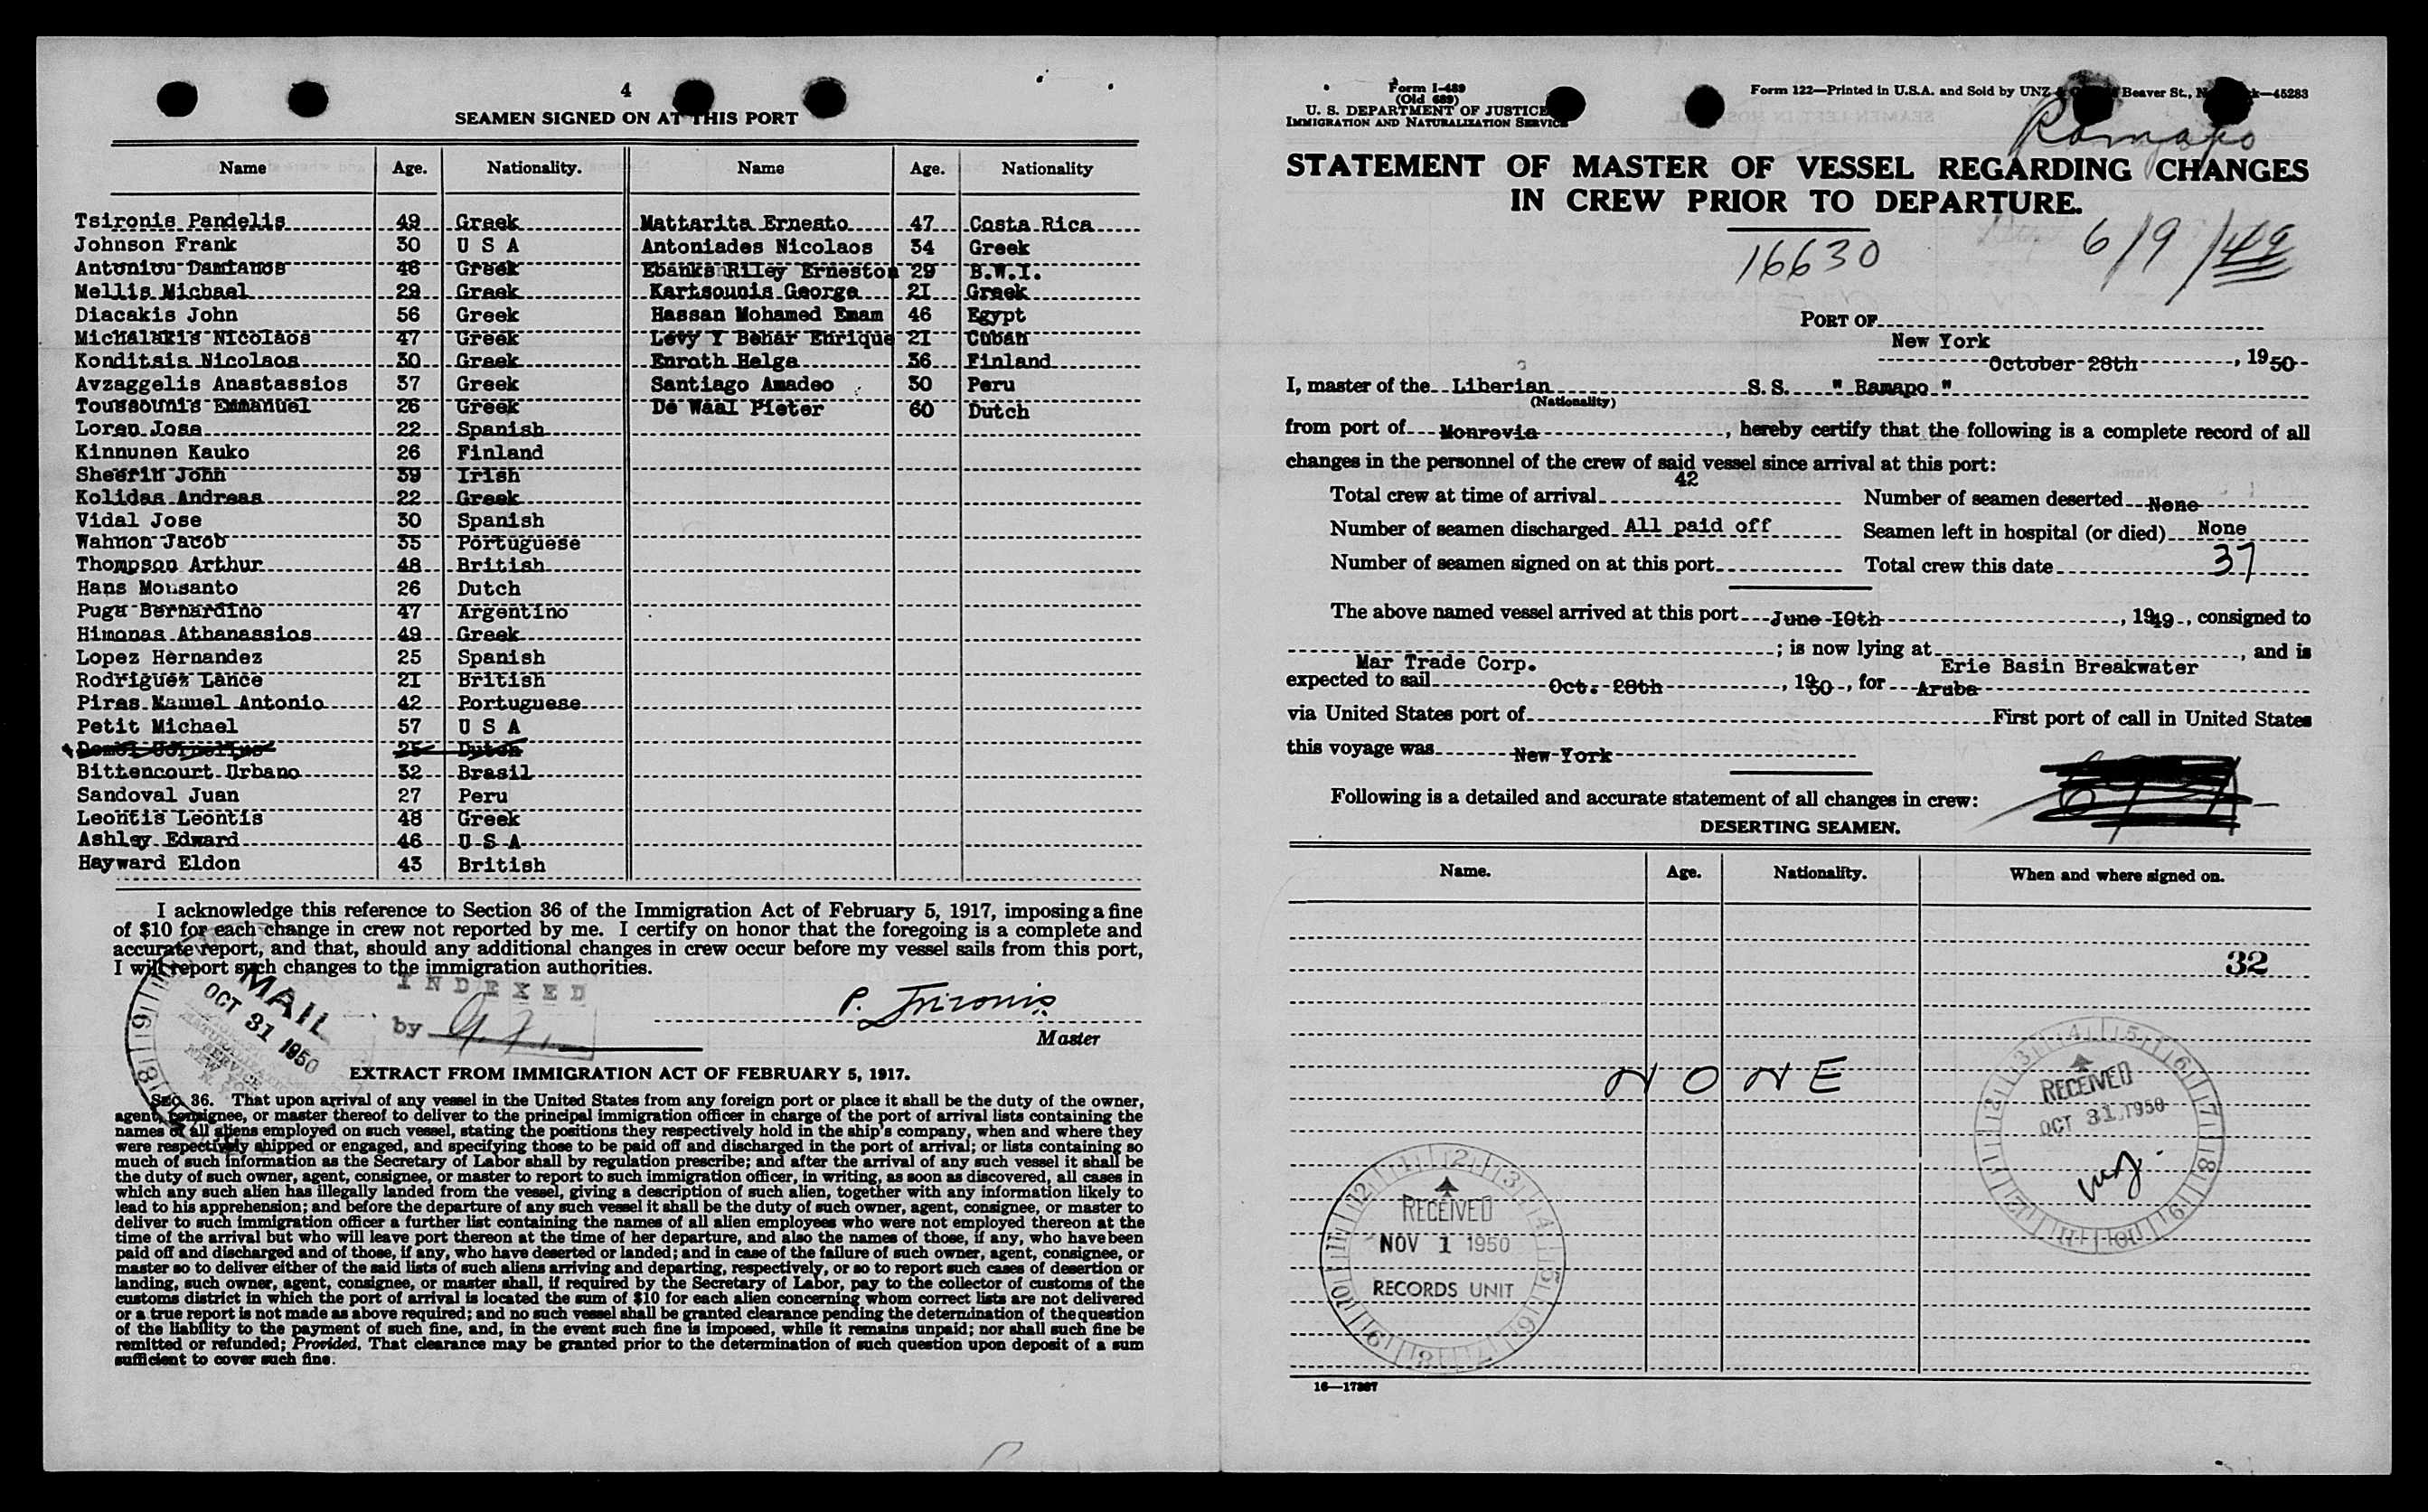 4
SEAMEN SIGNED ON AT THIS PORT
Name Age. Nationality. Name Age. Nationality
Tsironis Pandelis 49 Greek Mattarita Ernesto 47 Costa Rica
Johnson Frank 30 U S A Antoniades Nicolaos 34 Greek
Antoniou Damianos 46 Greek Ebanks Riley Erneston 29 B.W.I.
Mellis Michael 29 Greek Kartsounis George 21 Greek
Diacakis John 56 Greek Hassan Mohamed Emam 46 Egypt
Michalakis Nicolaos 47 Greek Levy Y Behar Enrique 21 Cuban
Konditsis Nicolaos 30 Greek Enroth Helge 36 Finland
Avzaggelis Anastassios 37 Greek Santiago Amadeo 30 Peru
Toussounis Emmanuel 26 Greek De Waal Pieter 60 Dutch
Loren Jose 22 Spanish
Kinnunen Kauko 26 Finland
Sheerin John 39 Irish
Kolidas Andreas 22 Greek
Vidal Jose 30 Spanish
Wahnon Jacob 35 Portuguese
Thompson Arthur 48 British
Hans Monsanto 26 Dutch
Puga Bernardino 47 Argentino
Himonas Athanassios 49 Greek
Lopez Hernandez 25 Spanish
Rodriguez Lance 21 British
Piras Manuel Antonio 42 Portuguese
Petit Michael 57 U S A
25 Dutch
Bittencourt Urbano 32 Brasil
Sandoval Juan 27 Peru
Leontis Leontis 48 Greek
Ashley Edward 46 U S A
Hayward Eldon 43 British
I acknowledge this reference to Section 36 of the Immigration Act of February 5, 1917, imposing a fine
of $10 for each change in crew not reported by me. I certify on honor that the foregoing is a complete and
accurate report, and that, should any additional changes in crew occur before my vessel sails from this port,
I will report such changes to the immigration authorities.
MAIL
OCT 31 1950
INDEXED
by
P. Tsironis
Master
EXTRACT FROM IMMIGRATION ACT OF FEBRUARY 5, 1917.
SEC. 36. That upon arrival of any vessel in the United States from any foreign port or place it shall be the duty of the owner,
agent, consignee, or master thereof to deliver to the principal immigration officer in charge of the port of arrival lists containing the
names of all aliens employed on such vessel, stating the positions they respectively hold in the ship's company, when and where they
were respectively shipped or engaged, and specifying those to be paid off and discharged in the port of arrival; or lists containing so
much of such information as the Secretary of Labor shall by regulation prescribe; and after the arrival of any such vessel it shall be
the duty of such owner, agent, consignee, or master to report to such immigration officer, in writing, as soon as discovered, all cases in
which any such alien has illegally landed from the vessel, giving a description of such alien, together with any information likely to
lead to his apprehension; and before the departure of any such vessel it shall be the duty of such owner, agent, consignee, or master to
deliver to such immigration officer a further list containing the names of all alien employees who were not employed thereon at the
time of the arrival but who will leave port thereon at the time of her departure, and also the names of those, if any, who have been
paid off and discharged and of those, if any, who have deserted or landed; and in case of the failure of such owner, agent, consignee, or
master so to deliver either of the said lists of such aliens arriving and departing, respectively, or so to report such cases of desertion or
landing, such owner, agent, consignee, or master shall, if required by the Secretary of Labor, pay to the collector of customs of the
customs district in which the port of arrival is located the sum of $10 for each alien concerning whom correct lists are not delivered
or a true report is not made as above required; and no such vessel shall be granted clearance pending the determination of the question
of the liability to the payment of such fine, and, in the event such fine is imposed, while it remains unpaid; nor shall such fine be
remitted or refunded; Provided, That clearance may be granted prior to the determination of such question upon deposit of a sum
sufficient to cover such fine.
Form I-489
(Old 689)
U. S. DEPARTMENT OF JUSTICE
IMMIGRATION AND NATURALIZATION SERVICE
Form 122—Printed in U.S.A. and Sold by UNZ Beaver St., 45283
Ramapo
STATEMENT OF MASTER OF VESSEL REGARDING CHANGES
IN CREW PRIOR TO DEPARTURE.
16630 6/9/49
PORT OF
New York
October 28th, 1950
I, master of the Liberian S. S. " Ramapo "
(Nationality)
from port of Monrovia, hereby certify that the following is a complete record of all
changes in the personnel of the crew of said vessel since arrival at this port:
Total crew at time of arrival 42 Number of seamen deserted None
Number of seamen discharged All paid off Seamen left in hospital (or died) None
Number of seamen signed on at this port Total crew this date 37
The above named vessel arrived at this port June 10th, 1949, consigned to
Mar Trade Corp.; is now lying at Erie Basin Breakwater, and is
expected to sail Oct. 28th, 1950, for Aruba
via United States port of First port of call in United States
this voyage was New York
Following is a detailed and accurate statement of all changes in crew:
DESERTING SEAMEN.
Name. Age. Nationality. When and where signed on.
32
NONE
RECEIVED
OCT 31 1950
RECEIVED
NOV 1 1950
RECORDS UNIT
16—17367